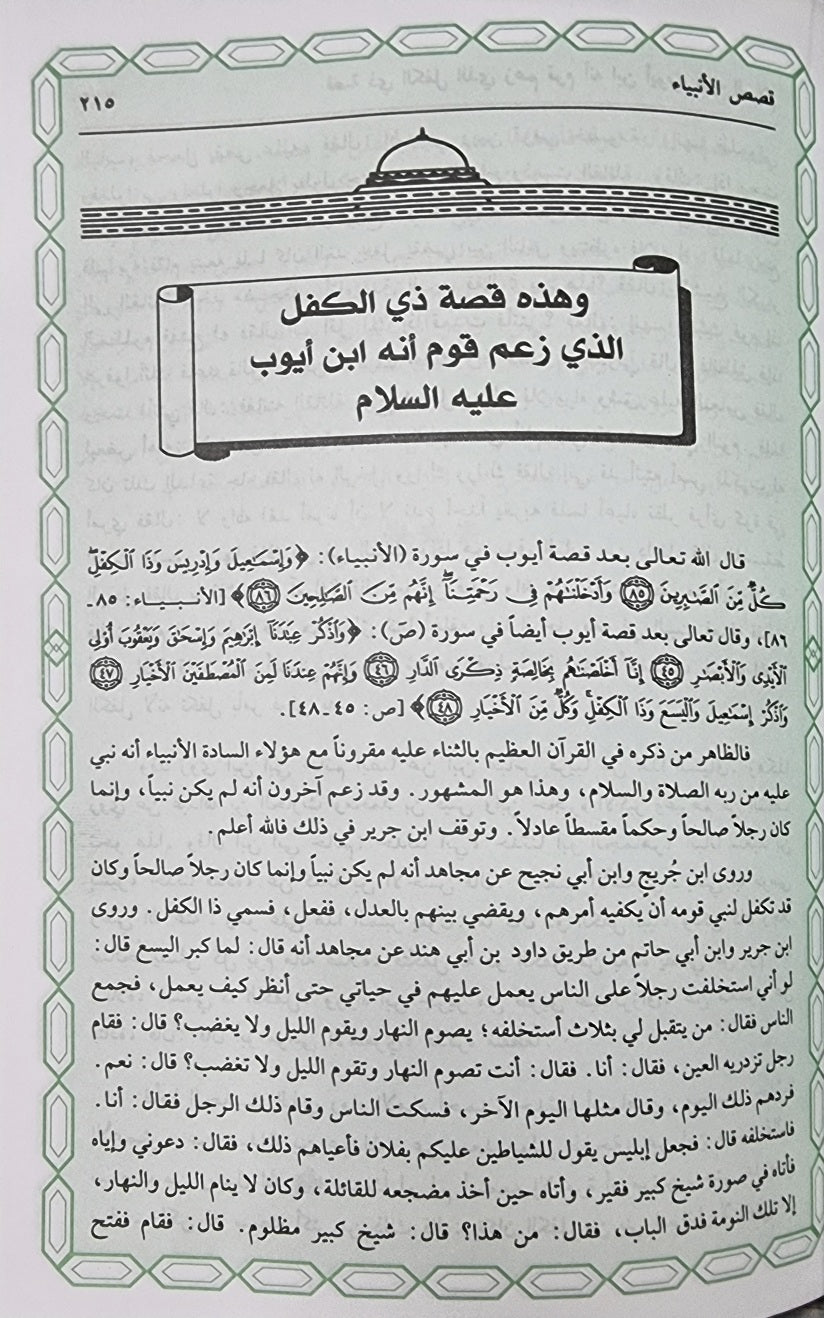 قصص الأنبياء
٢١٥
وهذه قصة ذي الكفل
الذي زعم قوم أنه ابن أيوب
عليه السلام
قال الله تعالى بعد قصة أيوب في سورة (الأنبياء): ﴿وَإِسْمَٰعِيلَ وَإِدْرِيسَ وَذَا ٱلْكِفْلِۖ
كُلٌّ مِّنَ ٱلصَّٰبِرِينَ (٨٥) وَأَدْخَلْنَٰهُمْ فِى رَحْمَتِنَآۖ إِنَّهُم مِّنَ ٱلصَّٰلِحِينَ (٨٦)﴾ [الأنبياء: ٨٥ـ
٨٦]، وقال تعالى بعد قصة أيوب أيضاً في سورة (صَ): ﴿وَٱذْكُرْ عِبَٰدَنَآ إِبْرَٰهِيمَ وَإِسْحَٰقَ وَيَعْقُوبَ أُو۟لِى
ٱلْأَيْدِى وَٱلْأَبْصَٰرِ (٤٥) إِنَّآ أَخْلَصْنَٰهُم بِخَالِصَةٍ ذِكْرَى ٱلدَّارِ (٤٦) وَإِنَّهُمْ عِندَنَا لَمِنَ ٱلْمُصْطَفَيْنَ ٱلْأَخْيَارِ (٤٧)
وَٱذْكُرْ إِسْمَٰعِيلَ وَٱلْيَسَعَ وَذَا ٱلْكِفْلِۖ وَكُلٌّ مِّنَ ٱلْأَخْيَارِ (٤٨)﴾ [ص: ٤٥ـ٤٨].
فالظاهر من ذكره في القرآن العظيم بالثناء عليه مقروناً مع هؤلاء السادة الأنبياء أنه نبي
عليه من ربه الصلاة والسلام، وهذا هو المشهور. وقد زعم آخرون أنه لم يكن نبياً، وإنما
كان رجلاً صالحاً وحكماً مقسطاً عادلاً. وتوقف ابن جرير في ذلك فالله أعلم.
وروى ابن جُريج وابن أبي نجيح عن مجاهد أنه لم يكن نبياً وإنما كان رجلاً صالحاً وكان
قد تكفل لنبي قومه أن يكفيه أمرهم، ويقضي بينهم بالعدل، ففعل، فسمي ذا الكفل. وروى
ابن جرير وابن أبي حاتم من طريق داود بن أبي هند عن مجاهد أنه قال: لما كبر اليسع قال:
لو أني استخلفت رجلاً على الناس يعمل عليهم في حياتي حتى أنظر كيف يعمل، فجمع
الناس فقال: من يتقبل لي بثلاث أستخلفه؛ يصوم النهار ويقوم الليل ولا يغضب؟ قال: فقام
رجل تزدريه العين، فقال: أنا. فقال: أنت تصوم النهار وتقوم الليل ولا تغضب؟ قال: نعم.
فردهم ذلك اليوم، وقال مثلها اليوم الآخر، فسكت الناس وقام ذلك الرجل فقال: أنا.
فاستخلفه قال: فجعل إبليس يقول للشياطين عليكم بفلان فأعياهم ذلك، فقال: دعوني وإياه
فأتاه في صورة شيخ كبير فقير، وأتاه حين أخذ مضجعه للقائلة، وكان لا ينام الليل والنهار،
إلا تلك النومة فدق الباب، فقال: من هذا؟ قال: شيخ كبير مظلوم. قال: فقام ففتح